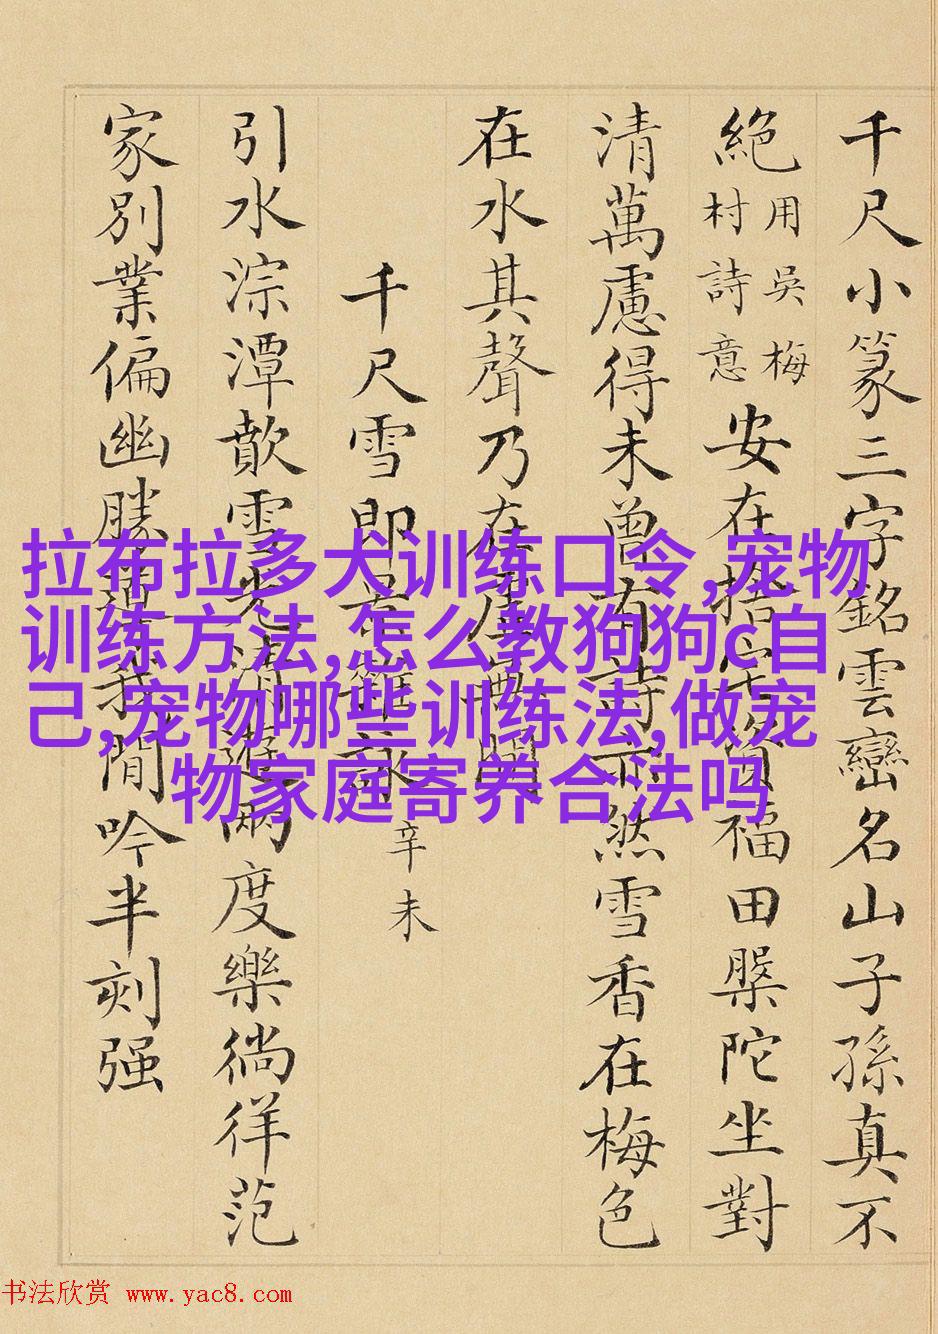 千尺小篆三字銘雲巒名山子孫真不
絶用吳梅村詩意安在捨宅資福田槃陀坐對
清萬慮得未曾有詩不然雪香在梅色
在水其聲乃在虛無間
千尺雪即景雜詠辛未
引水淙潭歕雪光清遊兩度樂徜徉范
家別業偏幽勝我閒吟半刻强
拉布拉多犬训练口令,宠物
训练方法,怎么教狗狗c自
己,宠物哪些训练法,做宠
物家庭寄养合法吗
书法欣赏 www.yac8.com